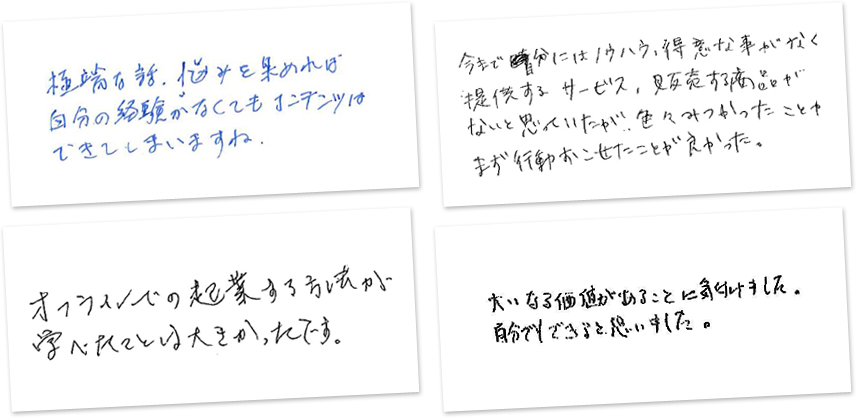 極端な話、悩みを集めれば
自分の経験がなくてもコンテンツは
できてしまいますね。
今まで自分にはノウハウ、得意な事がなく
提供するサービス、販売する商品が
ないと思っていたが、色々みつかったことや
まず行動おこせたことが良かった。
オフラインでの起業する方法が
学べたことは大きかったです。
大いなる価値があることに気付けました。
自分でもできると思いました。